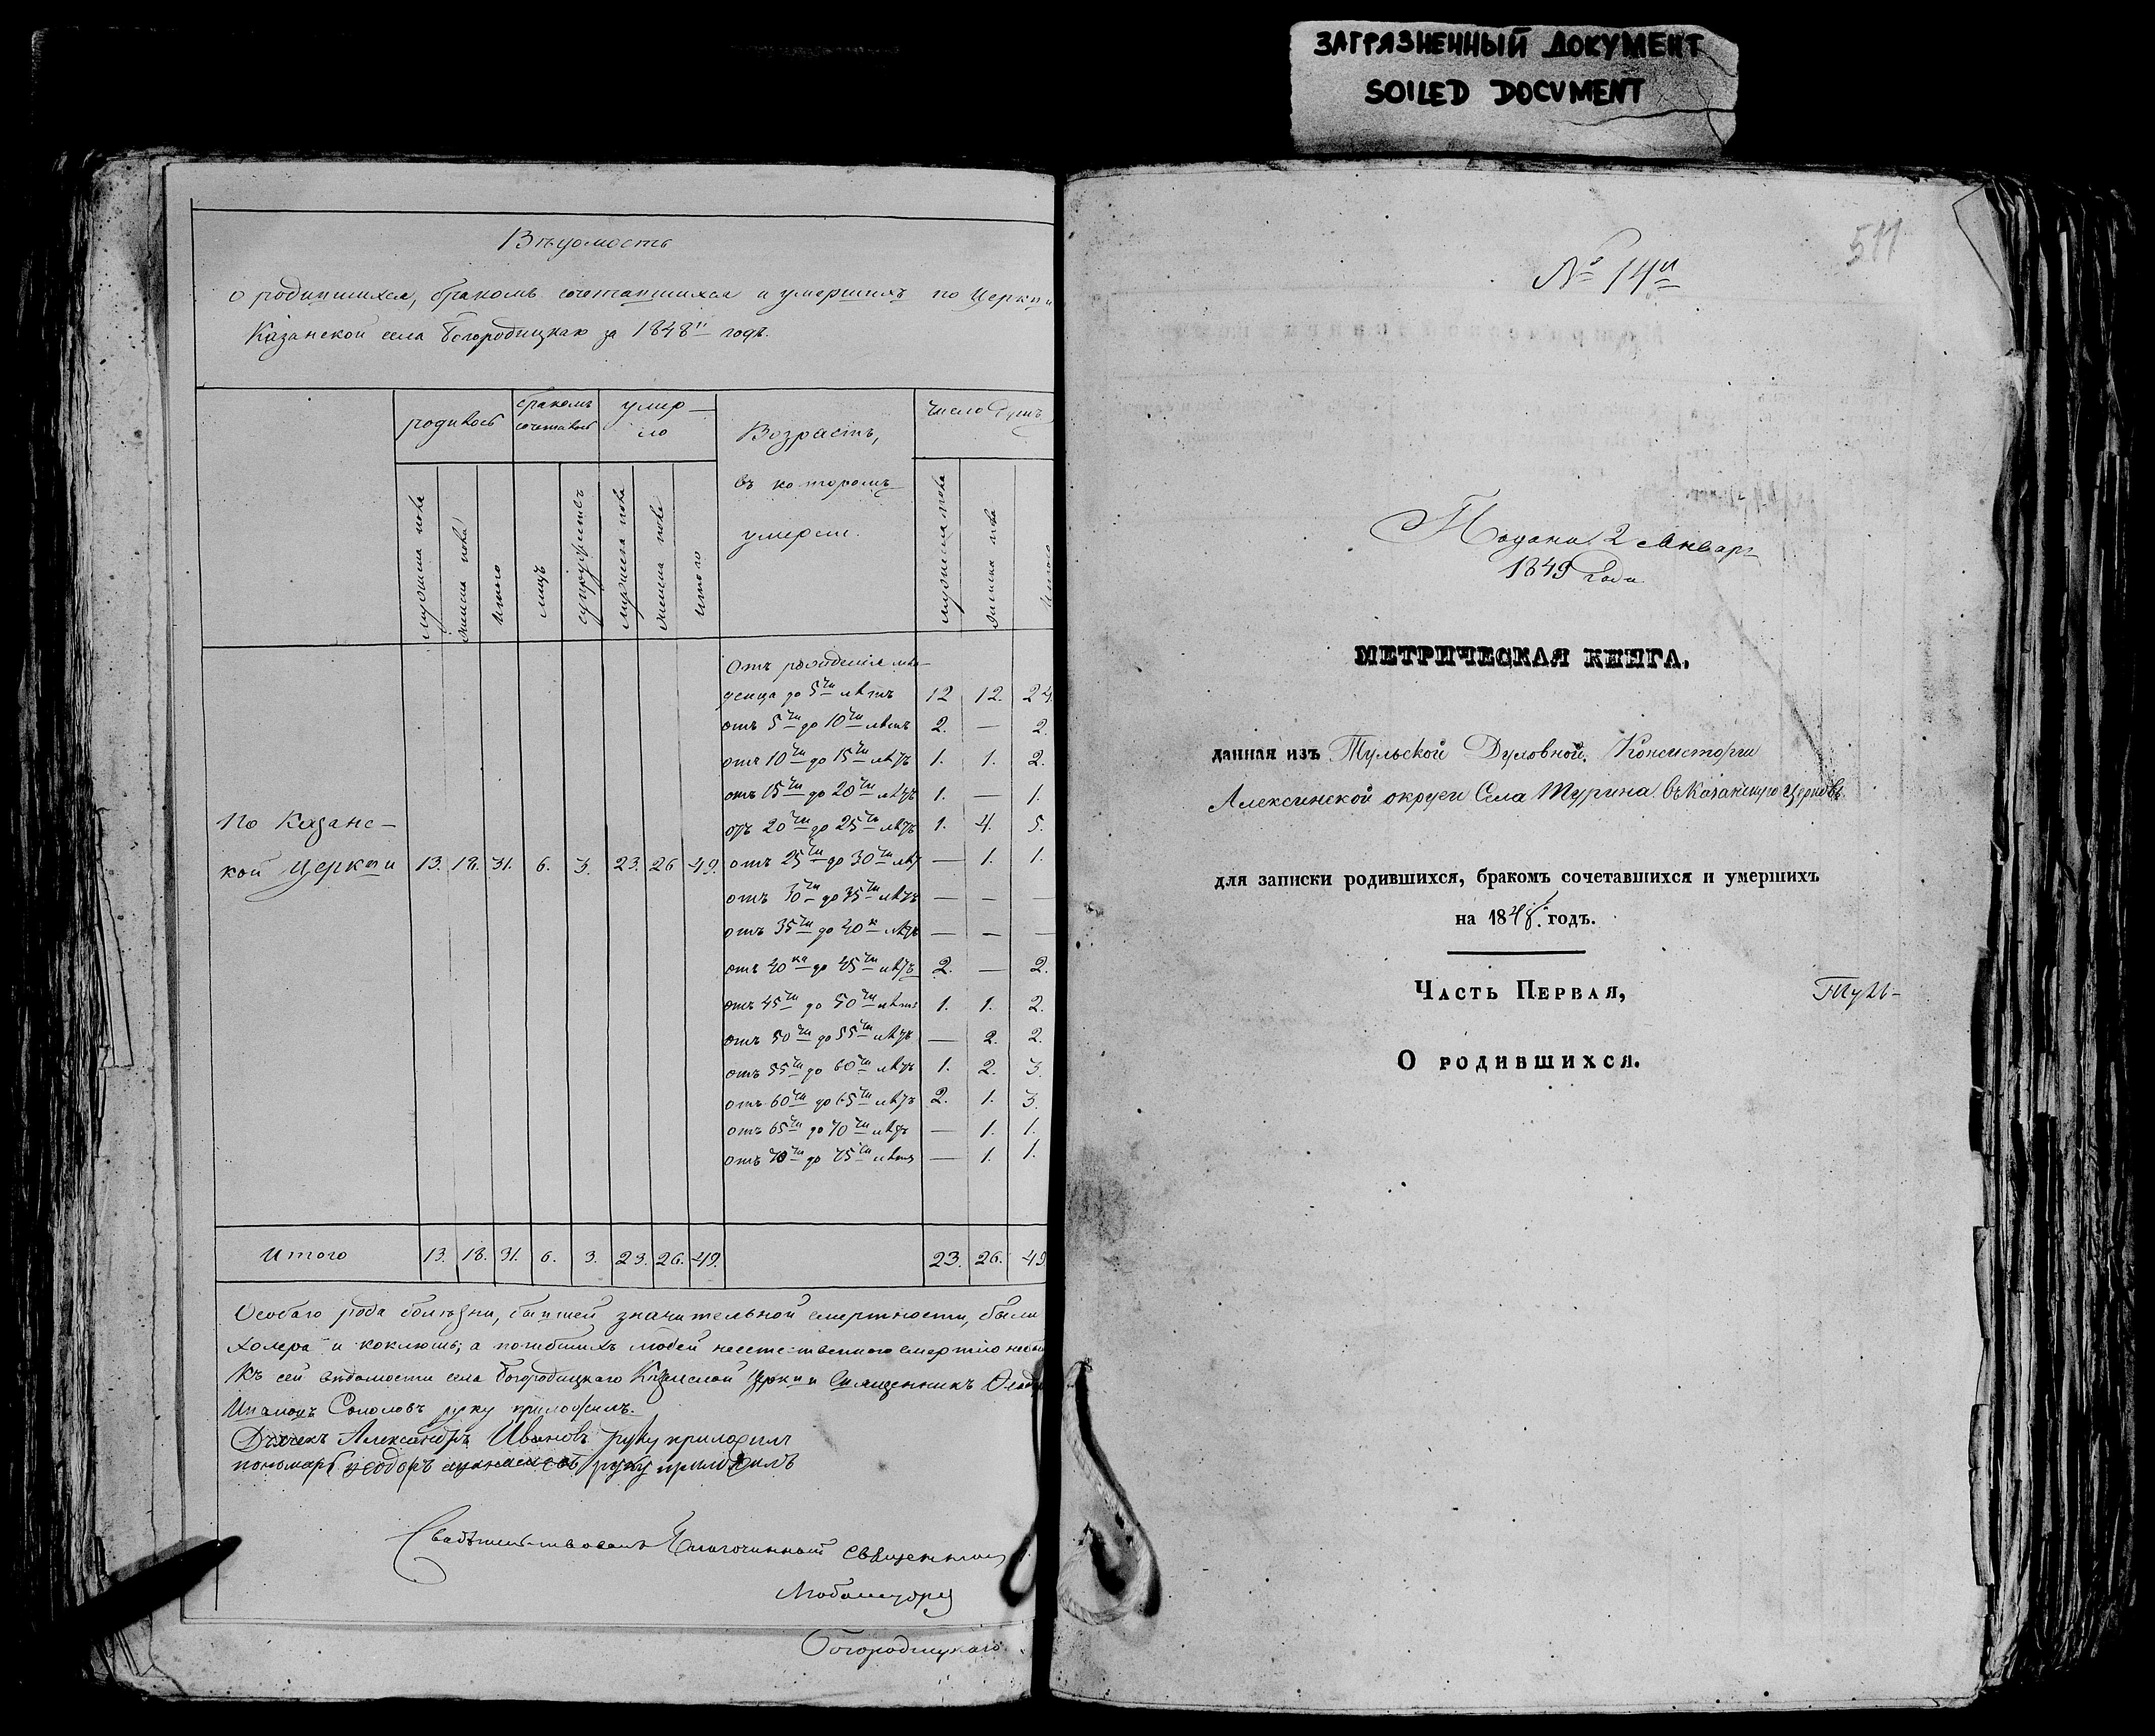 ЗАГРЯЗНЕННЫЙ ДОКУМЕНТ
SOILED DOCUMENT
Вѣдомость
о родившихся, бракомъ сочетавшихся и умершихъ по Церкви
Казанской села Богородицкаго за 1848й годъ.
родилось
бракомъ сочеталось
умерло
Возрастъ,
въ которомъ
умерли.
число душъ
мужеска пола
женска пола
итого
лицъ
супружествъ
мужеска пола
женска пола
итого
мужеска пола
женска пола
итого
По Казанс-
кой Церкви 13. 18. 31. 6. 3. 23. 26 49.
Отъ рожденія мла-
денца до 5ти лѣтъ 12 12. 24.
отъ 5ти до 10ти лѣтъ 2. — 2.
отъ 10ти до 15ти лѣтъ 1. 1. 2.
отъ 15ти до 20ти лѣтъ 1. — 1.
отъ 20ти до 25ти лѣтъ 1. 4. 5.
отъ 25ти до 30ти лѣтъ — 1. 1.
отъ 30ти до 35ти лѣтъ — — —
отъ 35ти до 40а лѣтъ — — —
отъ 40ка до 45ти лѣтъ 2. — 2.
отъ 45ти до 50ти лѣтъ 1. 1. 2.
отъ 50ти до 55ти лѣтъ — 2. 2.
отъ 55ти до 60ти лѣтъ 1. 2. 3.
отъ 60ти до 65ти лѣтъ 2. 1. 3.
отъ 65ти до 70ти лѣтъ — 1. 1.
отъ 70ти до 75ти лѣтъ — 1. 1.
Итого 13. 18. 31. 6. 3. 23. 26. 49. 23. 26. 49
Особаго рода болѣзни, бывшей значительной смертности, были
холера и коклюшь; а погибшихъ людей неестественною смертію
Къ сей вѣдомости села Богородицкаго Казанской Церкви Священникъ
Соколовъ руку приложилъ.
Дьячекъ Александръ Ивановъ руку приложилъ
пономарь руку приложилъ
Свидѣтельствовалъ Благочинный Священникъ
Любомудръ
Богородицкаго
511
№ 14й
Подана 2 Января
1849 Года
МЕТРИЧЕСКАЯ КНИГА,
данная изъ Тульской Духовной Консисторіи
Алексинской округи Села Турина въ Казанскую Церковь
для записки родившихся, бракомъ сочетавшихся и умершихъ
на 1848. годъ.
Часть Первая,
О родившихся.
Тул-